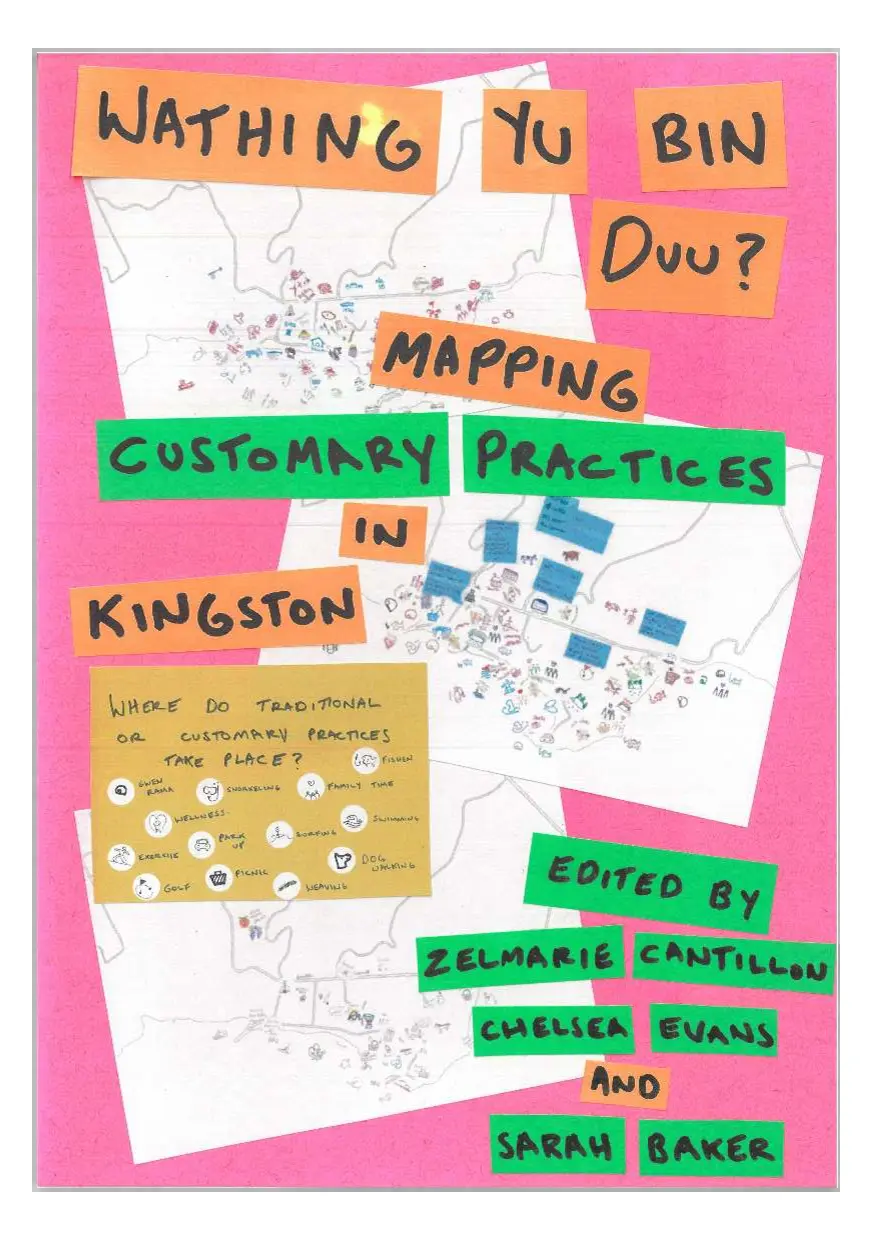 WATHING YU BIN
DUU?
MAPPING
CUSTOMARY PRACTICES
IN
KINGSTON
WHERE DO TRADITIONAL
OR CUSTOMARY PRACTICES
TAKE PLACE?
FISHEN
GWEN RAMA
SNORKELING
FAMILY TIME
WELLNESS
SWIMMING
EXERCISE
PARK UP
SURFING
DOG WALKING
GOLF
PICNIC
WEAVING
EDITED BY
ZELMARIE CANTILLON
CHELSEA EVANS
AND
SARAH BAKER